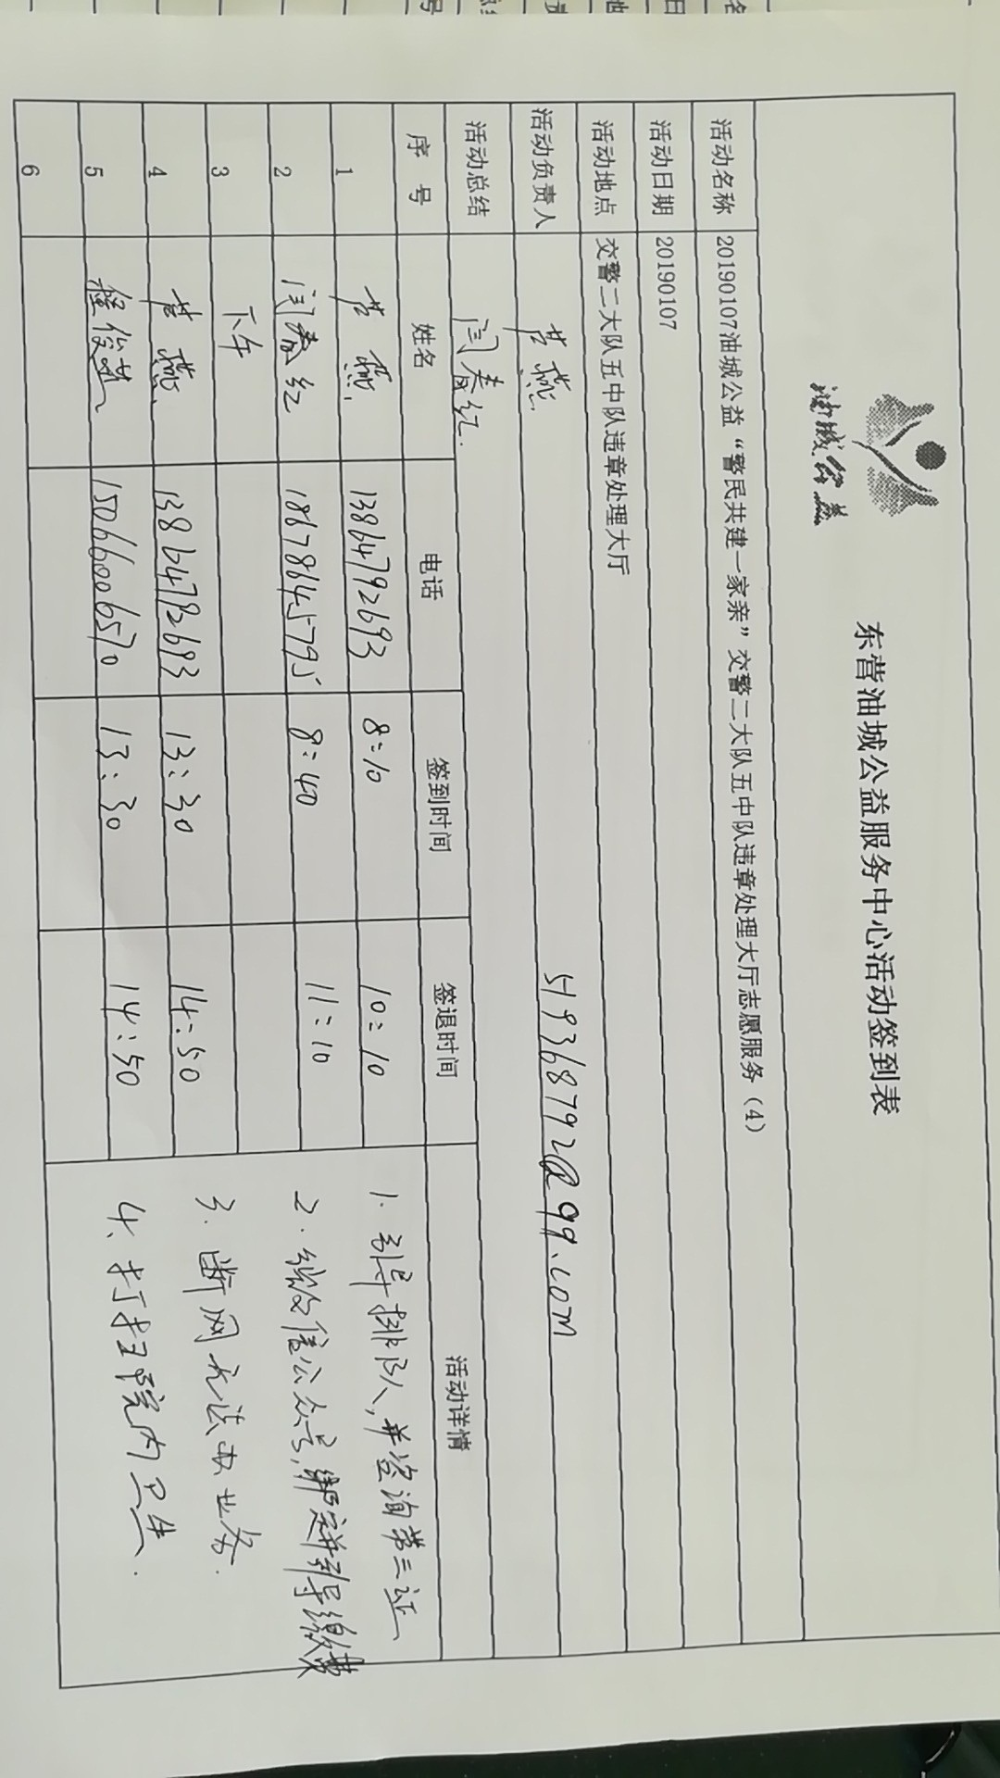 油城公益
东营油城公益服务中心活动签到表
活动名称 20190107油城公益“警民共建一家亲”交警二大队五中队违章处理大厅志愿服务（4）
活动日期 20190107
活动地点 交警二大队五中队违章处理大厅
活动负责人 燕 519368792@qq.com
活动总结 闫春红.
序号 姓名 电话 签到时间 签退时间 活动详情
1 燕. 13864792693 8:10 10:10
2 闫春红 18678645795 8:40 11:10
3 下午
4 燕. 13864792693 13:30 14:50
5 程俊 15066006570 13:30 14:50
6
1. 引导排队,并咨询带三证
2. 微信公众号,绑定并引导缴费
3. 断网无法办业务.
4、打扫院内卫生.